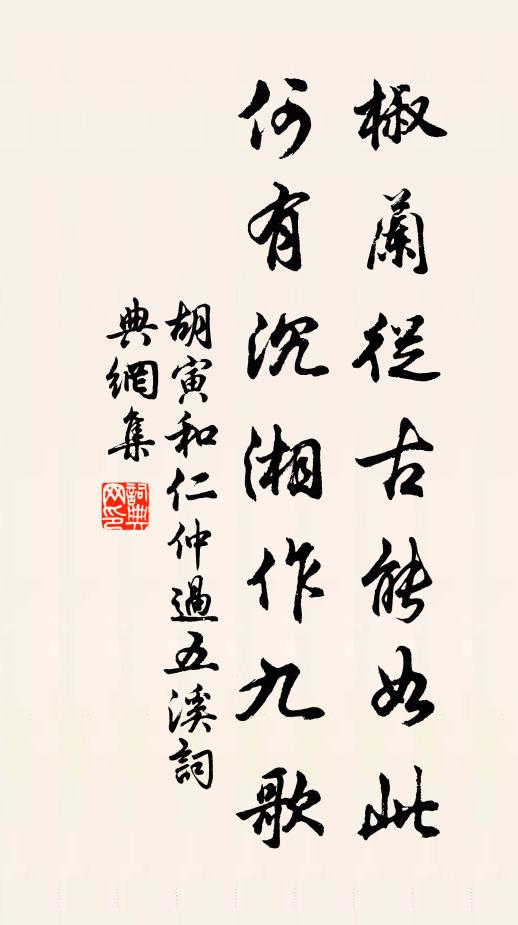 椒蘭從古能如此
何有沉湘作九歌
胡寅和仁仲過五溪詞
典網集
詞典网印